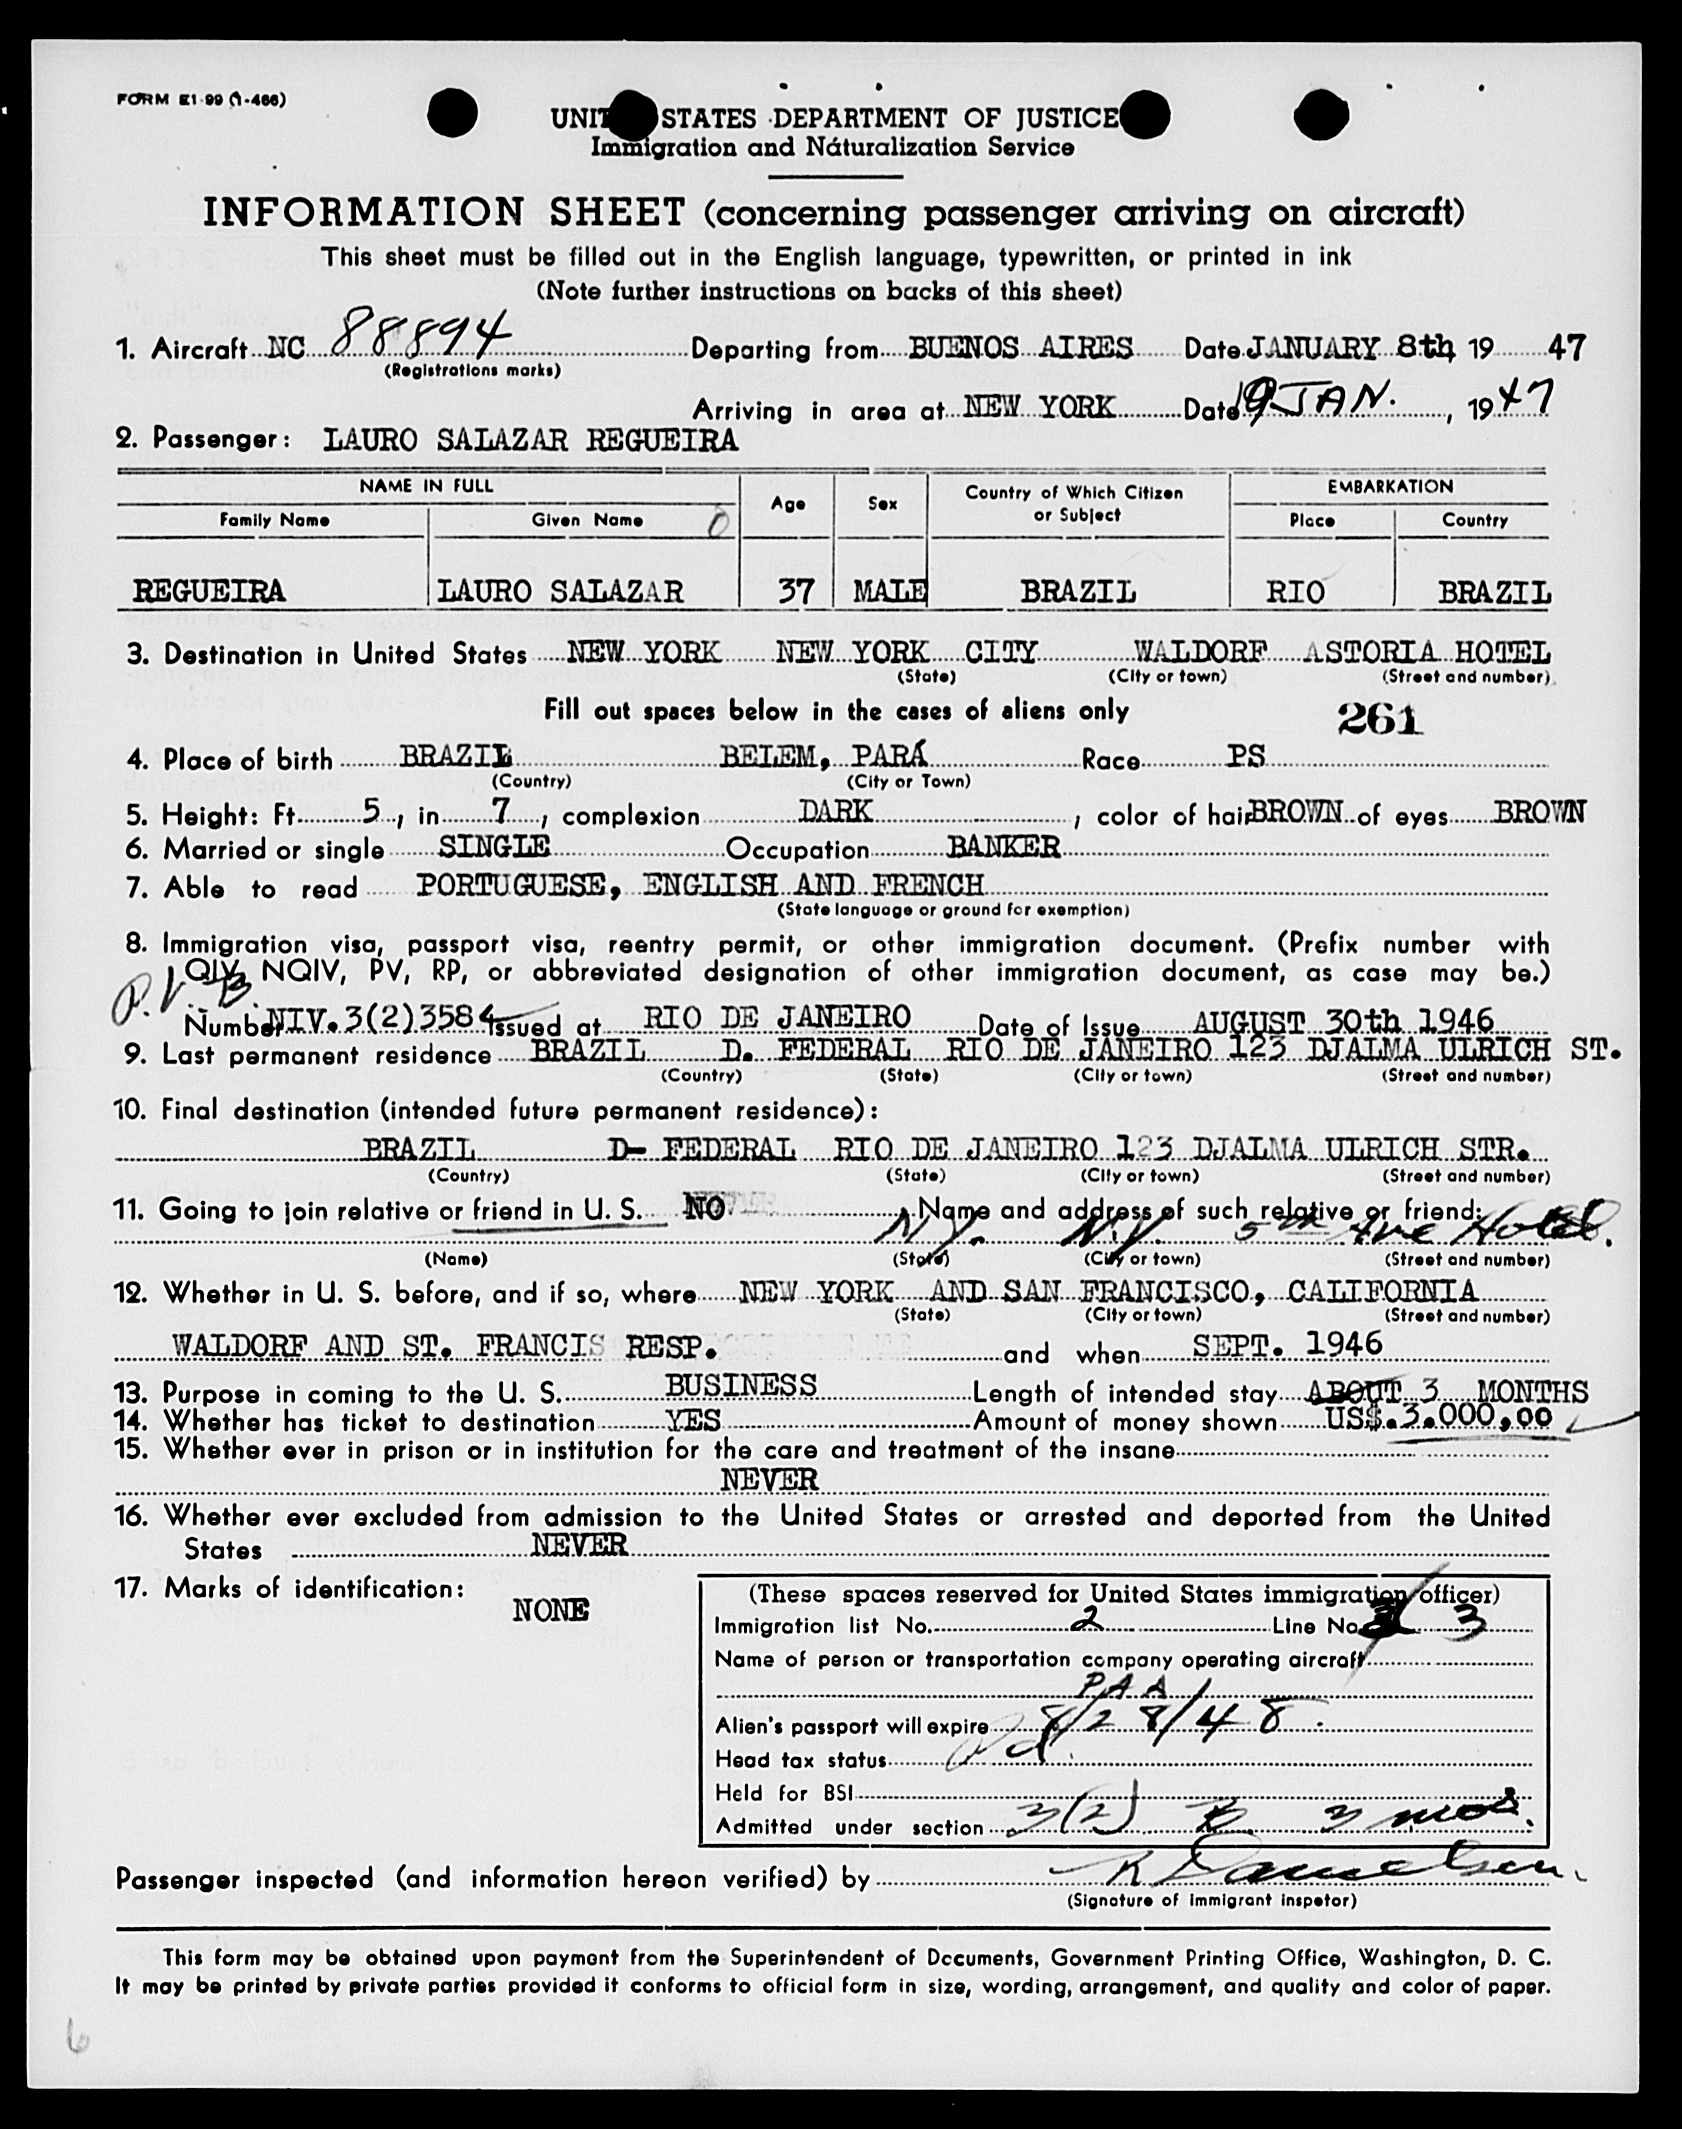 FORM E1-99 (1-466)
UNITED STATES DEPARTMENT OF JUSTICE
Immigration and Naturalization Service
INFORMATION SHEET (concerning passenger arriving on aircraft)
This sheet must be filled out in the English language, typewritten, or printed in ink
(Note further instructions on backs of this sheet)
1. Aircraft NC 88894 Departing from BUENOS AIRES Date JANUARY 8th 19 47
(Registrations marks)
Arriving in area at NEW YORK Date 9 JAN. , 19 47
2. Passenger: LAURO SALAZAR REGUEIRA
NAME IN FULL Age Sex Country of Which Citizen or Subject EMBARKATION
Family Name Given Name Place Country
REGUEIRA LAURO SALAZAR 37 MALE BRAZIL RIO BRAZIL
3. Destination in United States NEW YORK NEW YORK CITY WALDORF ASTORIA HOTEL
(State) (City or town) (Street and number)
Fill out spaces below in the cases of aliens only 261
4. Place of birth BRAZIL BELEM, PARÁ Race PS
(Country) (City or Town)
5. Height: Ft. 5, in. 7, complexion DARK, color of hair BROWN of eyes BROWN
6. Married or single SINGLE Occupation BANKER
7. Able to read PORTUGUESE, ENGLISH AND FRENCH
(State language or ground for exemption)
8. Immigration visa, passport visa, reentry permit, or other immigration document. (Prefix number with
QIV, NQIV, PV, RP, or abbreviated designation of other immigration document, as case may be.)
P.V. B.
Number NIV. 3(2)3584 Issued at RIO DE JANEIRO Date of Issue AUGUST 30th 1946
9. Last permanent residence BRAZIL D. FEDERAL RIO DE JANEIRO 123 DJALMA ULRICH ST.
(Country) (State) (City or town) (Street and number)
10. Final destination (intended future permanent residence):
BRAZIL D- FEDERAL RIO DE JANEIRO 123 DJALMA ULRICH STR.
(Country) (State) (City or town) (Street and number)
11. Going to join relative or friend in U. S. NO Name and address of such relative or friend:
N.Y. N.Y. 5th Ave Hotel.
(Name) (State) (City or town) (Street and number)
12. Whether in U. S. before, and if so, where NEW YORK AND SAN FRANCISCO, CALIFORNIA
(State) (City or town) (Street and number)
WALDORF AND ST. FRANCIS RESP. and when SEPT. 1946
13. Purpose in coming to the U. S. BUSINESS Length of intended stay ABOUT 3 MONTHS
14. Whether has ticket to destination YES Amount of money shown US$.3.000,00
15. Whether ever in prison or in institution for the care and treatment of the insane
NEVER
16. Whether ever excluded from admission to the United States or arrested and deported from the United
States NEVER
17. Marks of identification: NONE
(These spaces reserved for United States immigration officer)
Immigration list No. 2 Line No. 3
Name of person or transportation company operating aircraft
PAA
Alien's passport will expire 8/28/48.
Head tax status Pd.
Held for BSI
Admitted under section 3(2) B 3 mos.
Passenger inspected (and information hereon verified) by
(Signature of immigrant inspetor)
This form may be obtained upon payment from the Superintendent of Documents, Government Printing Office, Washington, D. C.
It may be printed by private parties provided it conforms to official form in size, wording, arrangement, and quality and color of paper.
6